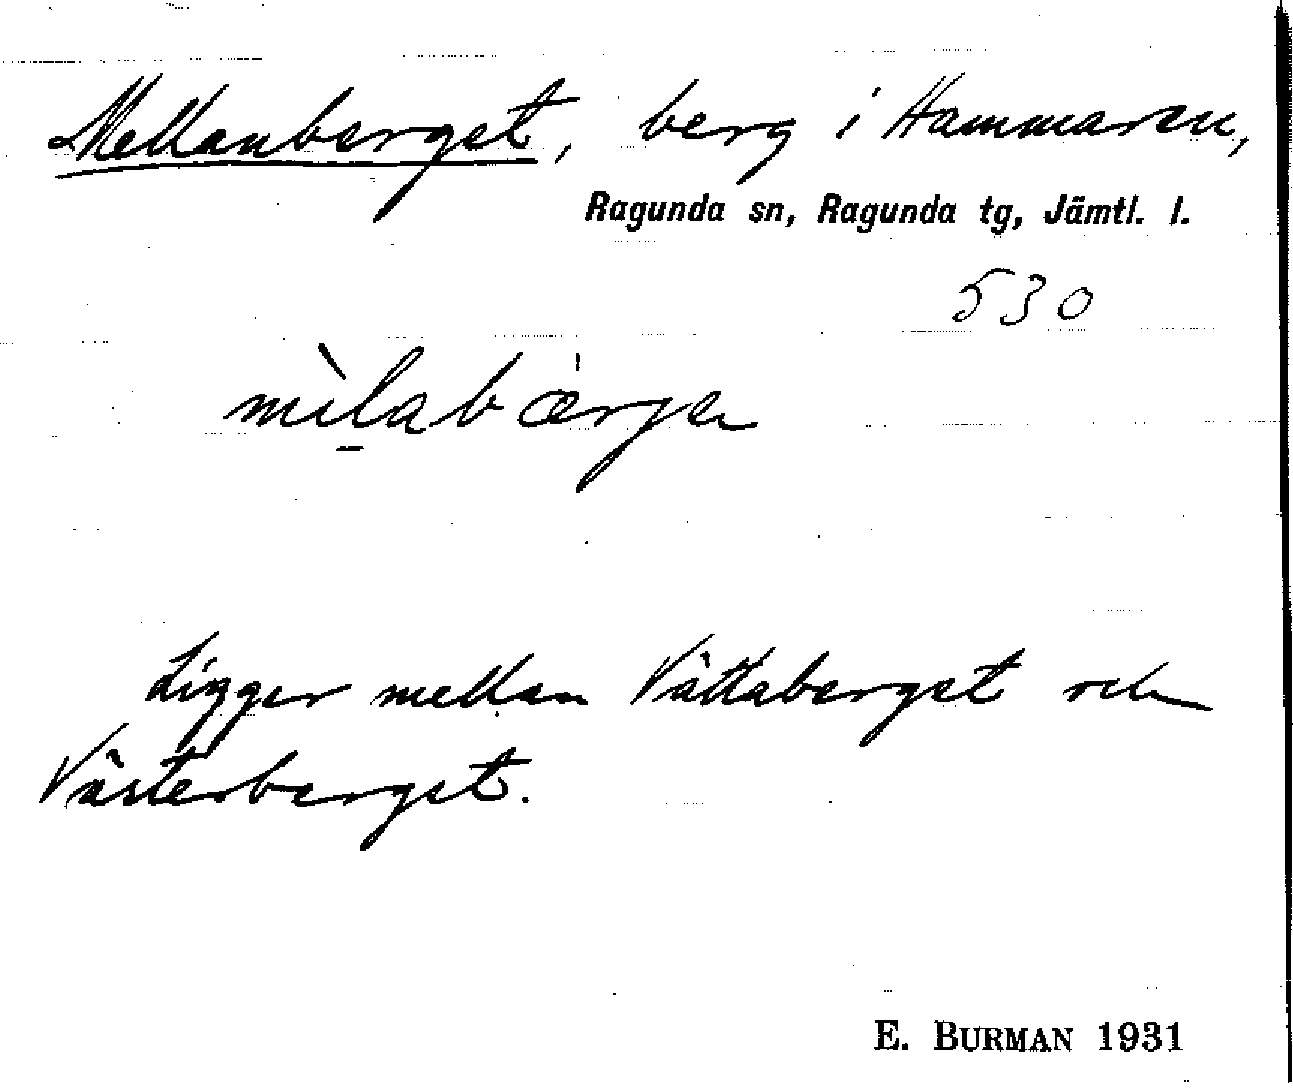 Mellanberget, berg i Hammaren,
Ragunda sn, Ragunda tg, Jämtl. l.
530
mìlabærjen
Ligger mellan Vättaberget och
Västerberget.
E. BURMAN 1931